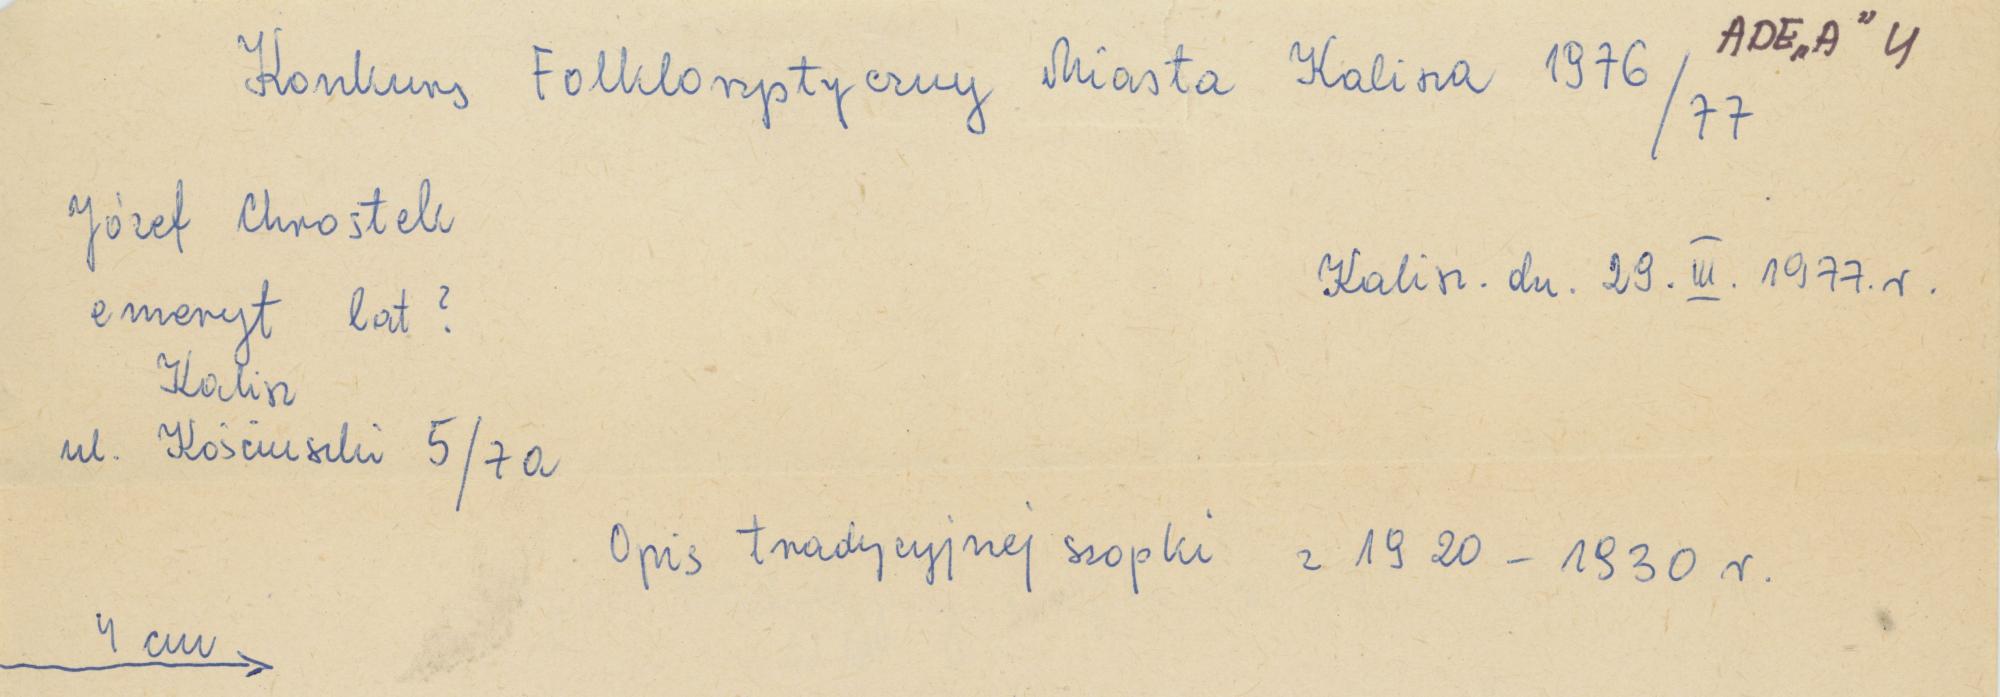 ADE „A” 4
Konkurs Folkloryptyczny Miasta Kalisza 1976/77
Józef Chrostek
Kalisz. dn. 29. III. 1977. r.
emeryt lat?
Kalisz
ul. Kościuszki 5/7a
Opis tradycyjnej szopki z 1920 – 1930 r.
4 cm